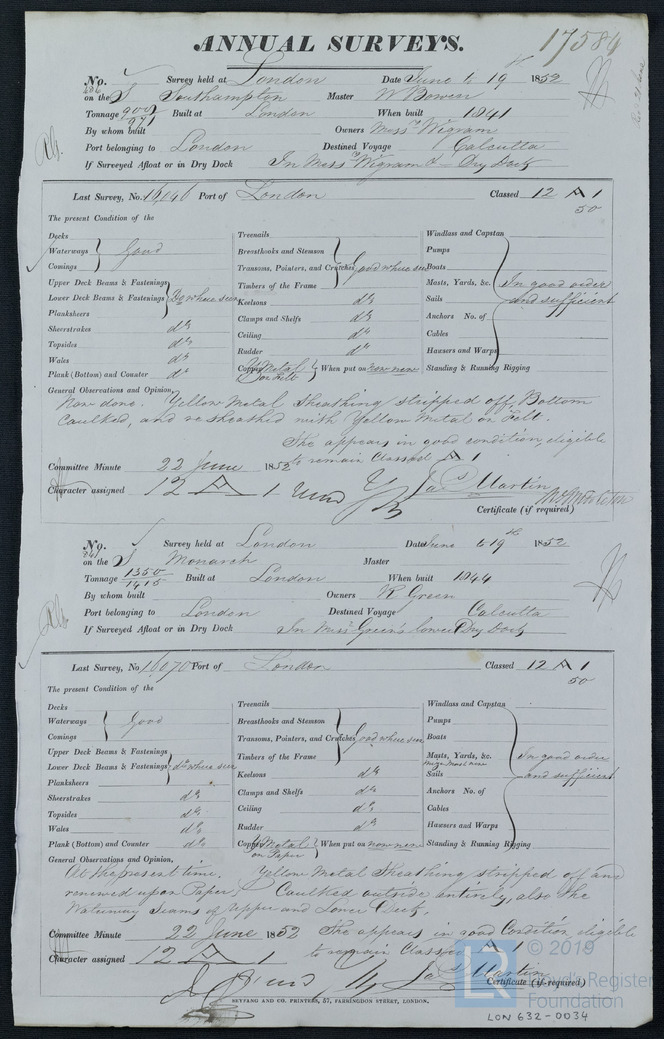 ANNUAL SURVEYS.
17584
No. Survey held at London Date June 6 19th 1852
on the S Southampton Master W Bowen
Tonnage 900/971 Built at London When built 1841
By whom built Owners Messrs Wigram
Port belonging to London Destined Voyage Calcutta
If Surveyed Afloat or in Dry Dock In Messrs Wigram's Dry Dock
Last Survey, No. 16046 Port of London Classed 12 A 1
50
The present Condition of the
Decks
Waterways Good
Comings
Upper Deck Beams & Fastenings
Lower Deck Beams & Fastenings Do where seen
Planksheers
Sheerstrakes do
Topsides do
Wales do
Plank (Bottom) and Counter do
Treenails
Breasthooks and Stemson
Transoms, Pointers, and Crutches Good where seen
Timbers of the Frame
Keelsons do
Clamps and Shelfs do
Ceiling do
Rudder do
Copper Y Metal on Felt When put on now new
Windlass and Capstan
Pumps
Boats
Masts, Yards, &c. In good order
Sails and sufficient
Anchors No. of
Cables
Hawsers and Warps
Standing & Running Rigging
General Observations and Opinion,
Now done. Yellow Metal Sheathing stripped off, Bottom
Caulked, and resheathed with Yellow Metal on Felt.
She appears in good condition, eligible
to remain Classed A 1
Committee Minute 22 June 1852
Character assigned 12 A 1
Jas Martin
Certificate (if required)
No. Survey held at London Date June 6 19th 1852
841
on the S Monarch Master
Tonnage 1350/1415 Built at London When built 1844
By whom built Owners R Green
Port belonging to London Destined Voyage Calcutta
If Surveyed Afloat or in Dry Dock In Messrs Green's lower Dry Dock
Last Survey, No 16070 Port of London Classed 12 A 1
50
The present Condition of the
Decks
Waterways Good
Comings
Upper Deck Beams & Fastenings
Lower Deck Beams & Fastenings do where seen
Planksheers
Sheerstrakes do
Topsides do
Wales do
Plank (Bottom) and Counter do
Treenails
Breasthooks and Stemson
Transoms, Pointers, and Crutches Good where seen
Timbers of the Frame
Keelsons do
Clamps and Shelfs do
Ceiling do
Rudder do
Copper Y Metal on Paper When put on now new
Windlass and Capstan
Pumps
Boats
Masts, Yards, &c. In good order
Mizn Mast new
Sails and sufficient
Anchors No. of
Cables
Hawsers and Warps
Standing & Running Rigging
General Observations and Opinion,
At the present time. Yellow Metal Sheathing stripped off and
renewed upon Paper. Caulked outside entirely, also the
Waterway Seams of Upper and Lower Deck.
Committee Minute 22 June 1852 She appears in good Condition eligible
to remain Classed A 1
Character assigned 12 A 1
Jas Martin
Certificate (if required)
SEYFANG AND CO. PRINTERS, 57, FARRINGDON STREET, LONDON.
© 2019
Lloyd's Register
Foundation
LR
LON 632-0034